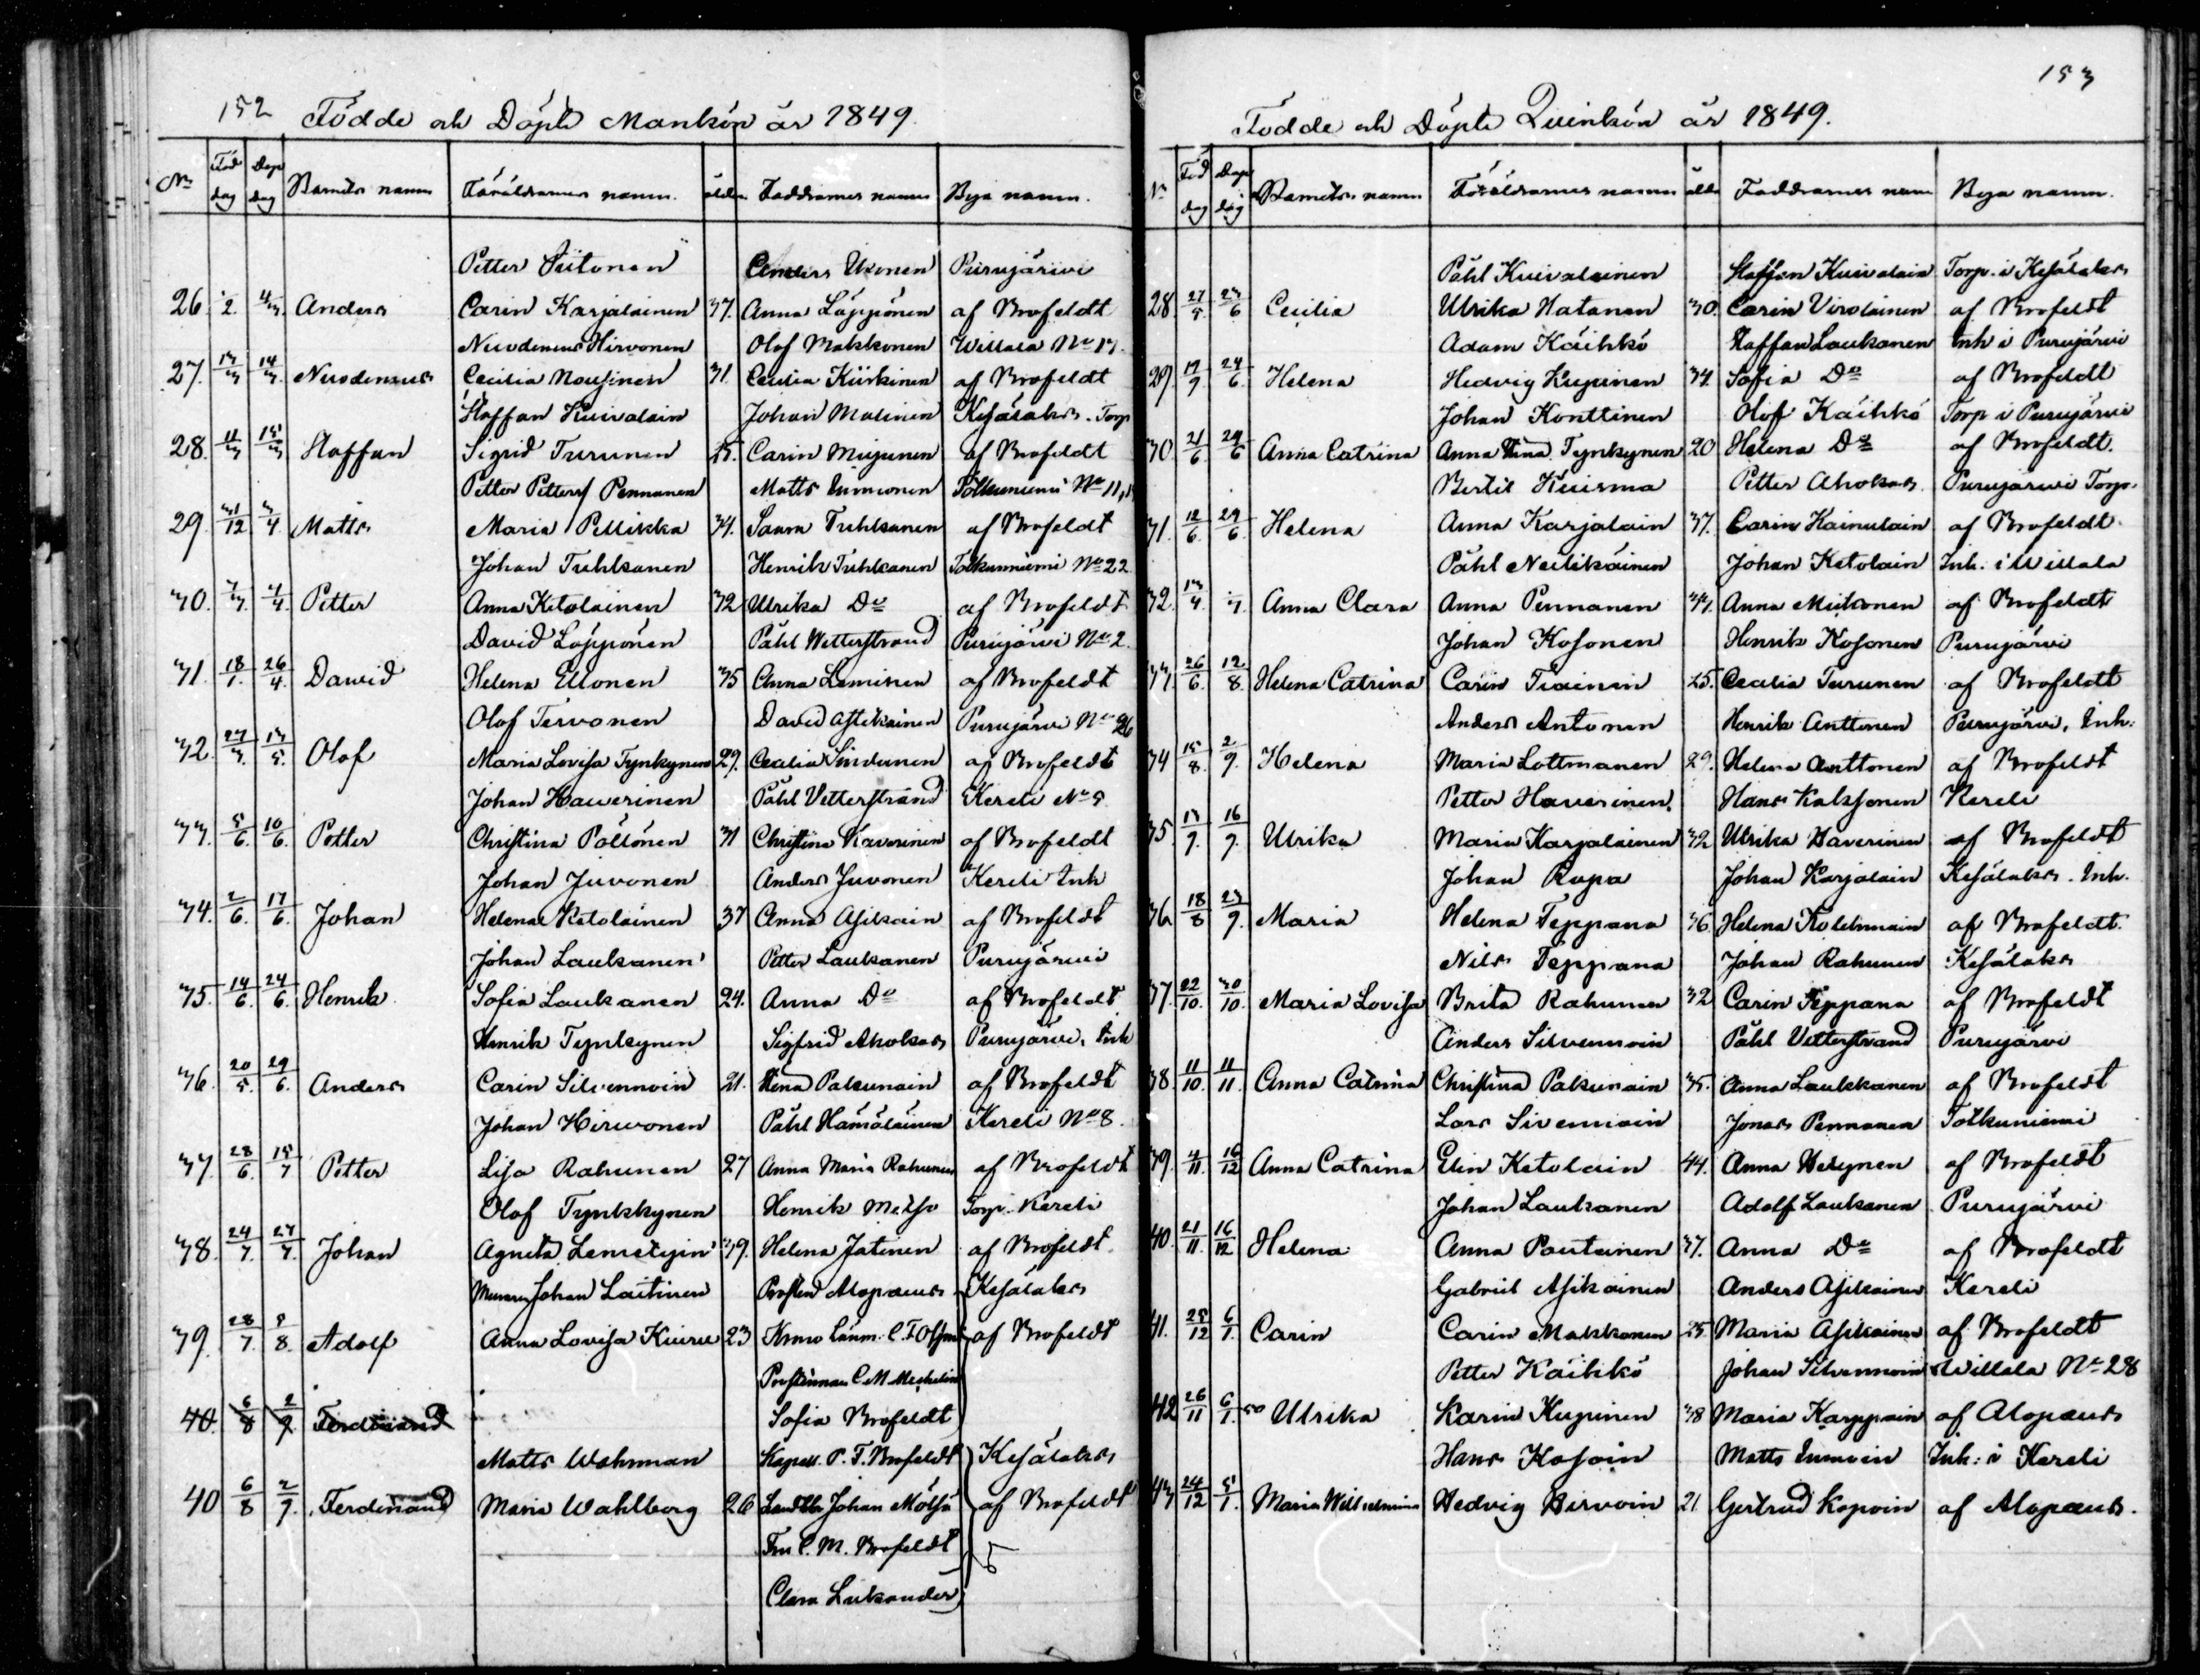 152 Födde och Döpte Mankön år 1849.
No Föd dag Dop dag Barnets namn Föräldrarnes namn. ålder Faddrarnes namn Bya namn.
Petter Siitonen Anders Ukonen Purujärwi
26. 4/3 Anders Carin Karjalainen 37. Anna Löppönen af Brofeldt
Nicodemus Hirvonen Olof Makkonen Willala No 13.
27. 13/3 14/3 Nicodemus Cecilia Nousinen 31 Cecilia Kiiskinen af Brofeldt
Staffan Kuivalain Johan Malinen Kesälaks. Torp
28. 11/3 15/3 Staffan Sigrid Turunen 25. Carin Mujunen af Brofeldt
Petter Petterss Pennanen Matts Immonen Totkunniemi No 11,
29. 31/12 3/4 Matts Maria Pellikka 34. Saara Tuhkanen af Brofeldt
Johan Tuhkanen Henrik Tuhkanen Totkunniemi No 22
30. 7/3 4/4 Petter Anna Ketolainen 32 Ulrika Do af Brofeldt
David Löppönen Påhl Wetterstrand Purujärvi No 2.
31. 18/1. 26/4. Dawid Helena Ellonen 35 Anna Leminen af Brofeldt
Olof Tervonen David Asikainen Purujärvi No 26
32. 27/3. 13/5. Olof Maria Lovisa Tynkynen 29. Cecilia Sinkonen af Brofeldt
Johan Hawerinen Påhl Vetterstrand Kereli No 5
33. 5/6. 10/6. Petter Christina Pöllönen 31 Christina Haverinen af Brofeldt
Johan Juvonen Anders Juvonen Kereli Inh
34. 2/6. 17/6. Johan Helena Ketolainen 37 Anna Asikain af Brofeldt
Johan Laukanen Petter Laukanen Purujärwi
35. 14/6. 24/6. Henrik Sofia Laukanen 24. Anna Do af Brofeldt
Henrik Tynkynen Sigfrid Ahokas Purujärvi, Inh
36. 20/5. 29/6. Anders Carin Silvennoin 21. Stina Pakunain af Brofeldt
Johan Hirwonen Påhl Hämäläinen Kereli No 8.
37. 28/6. 15/7 Petter Lisa Rahunen 27 Anna Maria Rahunen af Brofeldt
Olof Tynkkynen Henrik Melso Torp. Kereli
38. 24/7. 27/7. Johan Agneta Lemetyin 39. Helena Jatinen af Brofeldt.
Johan Laitinen Prosten Alopaeus Kesälaks
39. 28/7. 8. Adolf Anna Lovisa Kuiru 23 Krono Länm. C. F. af Brofeldt
Prostinnan C M Mechelin
40. 6/8 2/9. Ferdinand Sofia Brofeldt
Matts Wahrman Kapell. P. F. Brofeldt Kesälaks
40 6/8 2/9. Ferdinand Maria Wahlberg 26 Johan Mölsä af Brofeldt
Fru C. M. Brofeldt
Clara Lukander
153
Födde och Döpte Quinkön år 1849.
No Föd dag Dop dag Barnets namn Föräldrarnes namn ålder Faddrarnes namn Bya namn.
Påhl Kuivalainen Staffan Kuivalain Torp. i Kesälaks
28 27/5. 23/6 Cecilia Ulrika Hatanen 30. Carin Virolainen af Brofeldt
Adam Käihkö Staffan Laukanen Inh i Purujärvi
29 24/6. Helena Hedvig Kupinen 34. Sofia Do af Brofeldt
Johan Konttinen Olof Käihkö Torp i Purujärvi
30 21/6. 24/6 Anna Catrina Anna Stina Tynkynen 20 Helena Do af Brofeldt.
Bertil Kuisma Petter Ahokas Purujärwi Torp.
31. 12/6. 29/6. Helena Anna Karjalain 37. Carin Kainulain af Brofeldt.
Påhl Neilikäinen Johan Ketolain Inh. i Willala
32. 13/4. Anna Clara Anna Pennanen 33. Anna Mikonen af Brofeldt
Johan Kosonen Henrik Kosonen Purujärvi
33. 26/6. 12/8. Helena Catrina Carin Tiainin 25. Cecilia Turunen af Brofeldt
Anders Antonen Henrik Anttonen Purujärvi, Inh.
34 15/8. 2/9. Helena Maria Lottmanen 29. Helena Anttonen af Brofeldt
Petter Haverinen. Hans Kakssonen Kereli
35. 13/9. 16/9. Ulrika Maria Karjalainen 32 Ulrika Haverinen af Brofeldt
Johan Rupa Johan Karjalain Kesälaks. Inh.
36 18/8 23/9. Maria Helena Teppana 36. Helena Kolehmain af Brofeldt.
Nils Teppana Johan Rahunen Kesälaks
37. 22/10. 30/10. Maria Lovisa Brita Rahunen 32 Carin Teppana af Brofeldt
Anders Silvennoin Påhl Vetterstrand Purujärvi
38. 11/10. 11/11. Anna Catrina Christina Pakunain 35. Anna Laukkanen af Brofeldt
Lars Sivennoin Jonas Pennanen Totkuniemi
39. 4/11. 16/12 Anna Catrina Elin Ketolain 44. Anna af Brofeldt
Johan Laukanen Adolf Laukanen Purujärvi
40. 21/11. 16/12 Helena Anna Pautainen 37. Anna Do af Brofeldt
Gabriel Asikainen Anders Asikainen Kereli
41. 25/12 6/1. Carin Carin Makkonen 25 Maria Asikainen af Brofeldt
Petter Käihkö Johan Silvennoin Willala No 28
42 26/11 6/1. 50 Ulrika Karin Kupinen 38 Maria Karppain af Alopæus
Hans Kosoin Matts Immoin Inh. i Kereli
43 24/12 5/1. Maria Willhelmina Hedvig Hirvoin 21. Gertrud Kopoin af Alopæus.